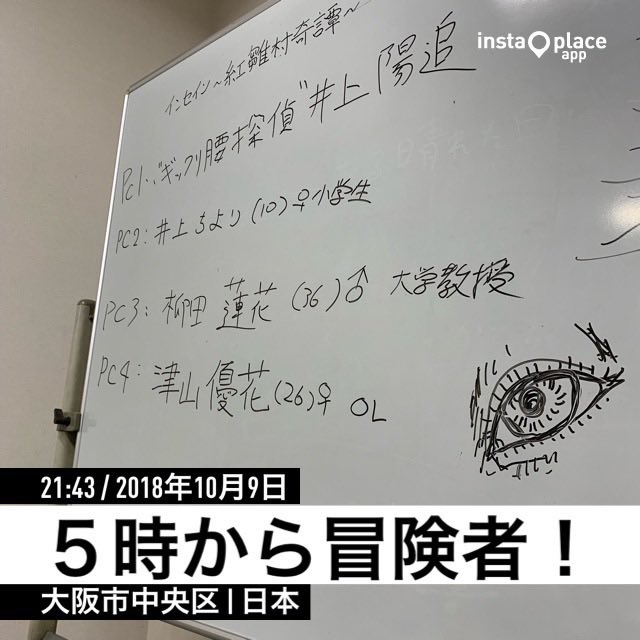 insta place
app
インセイン～紅雛村奇譚～
PC1:"ギックリ腰探偵"井上 陽追
PC2:井上 ちより(10)♀小学生
PC3:柳田 蓮花(36)♂ 大学教授
PC4:津山 優花(26)♀ OL
21:43 / 2018年10月9日
５時から冒険者！
大阪市中央区 | 日本